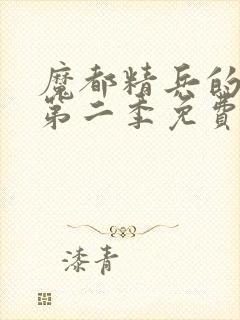 魔都精兵的
第二季免費
漆青